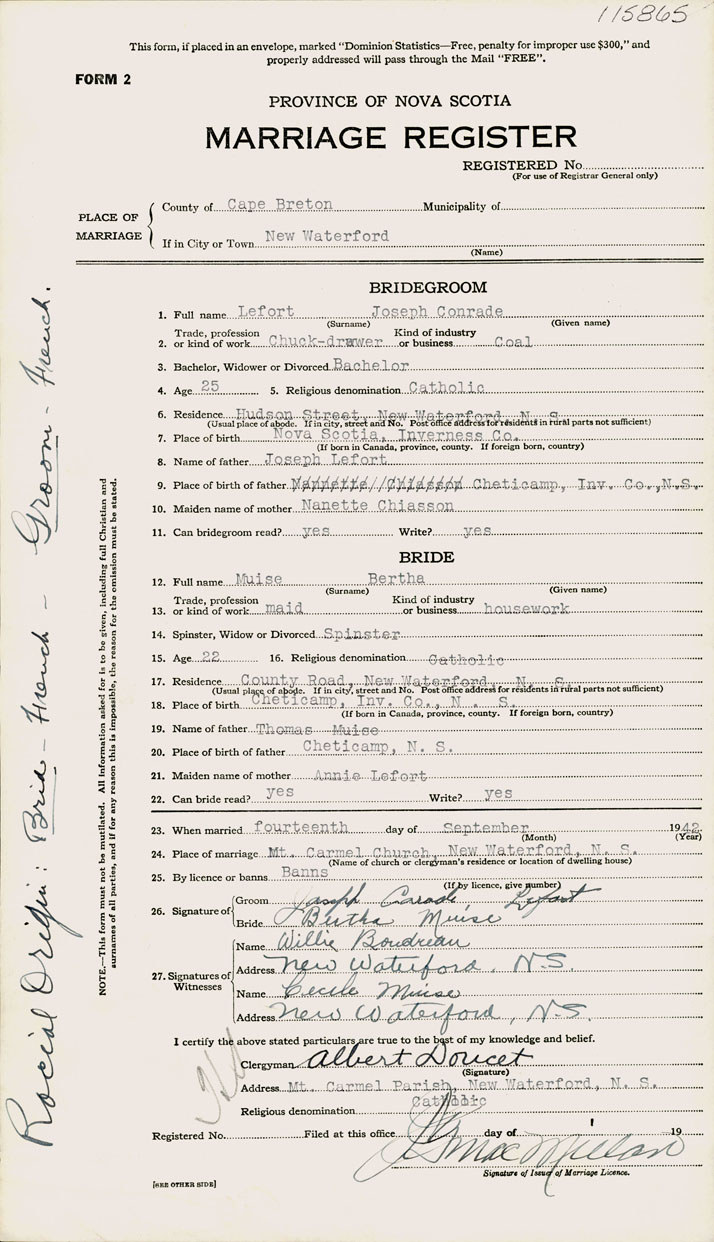 115865
This form, if placed in an envelope, marked "Dominion Statistics—Free, penalty for improper use $300," and
properly addressed will pass through the Mail "FREE".
FORM 2
PROVINCE OF NOVA SCOTIA
MARRIAGE REGISTER
REGISTERED No.
(For use of Registrar General only)
PLACE OF MARRIAGE
County of Cape Breton Municipality of
If in City or Town New Waterford
(Name)
BRIDEGROOM
1. Full name Lefort Joseph Conrade
(Surname) (Given name)
2. Trade, profession or kind of work Chuck-drawer Kind of industry or business Coal
3. Bachelor, Widower or Divorced Bachelor
4. Age 25 5. Religious denomination Catholic
6. Residence Hudson Street, New Waterford, N. S.
(Usual place of abode. If in city, street and No. Post office address for residents in rural parts not sufficient)
7. Place of birth Nova Scotia, Inverness Co.
(If born in Canada, province, county. If foreign born, country)
8. Name of father Joseph Lefort
9. Place of birth of father Nannette Chiasson Cheticamp, Inv. Co., N.S.
10. Maiden name of mother Nanette Chiasson
11. Can bridegroom read? yes Write? yes
BRIDE
12. Full name Muise Bertha
(Surname) (Given name)
13. Trade, profession or kind of work maid Kind of industry or business housework
14. Spinster, Widow or Divorced Spinster
15. Age 22 16. Religious denomination Catholic
17. Residence County Road, New Waterford, N. S.
(Usual place of abode. If in city, street and No. Post office address for residents in rural parts not sufficient)
18. Place of birth Cheticamp, Inv. Co., N. S.
(If born in Canada, province, county. If foreign born, country)
19. Name of father Thomas Muise
20. Place of birth of father Cheticamp, N. S.
21. Maiden name of mother Annie Lefort
22. Can bride read? yes Write? yes
23. When married fourteenth day of September 1942
(Month) (Year)
24. Place of marriage Mt. Carmel Church, New Waterford, N. S.
(Name of church or clergyman's residence or location of dwelling house)
25. By licence or banns Banns
(If by licence, give number)
26. Signature of
Groom Joseph Conrade Lefort
Bride Bertha Muise
27. Signatures of Witnesses
Name Willie Boudreau
Address New Waterford, N.S.
Name Cecile Muise
Address New Waterford, N.S.
I certify the above stated particulars are true to the best of my knowledge and belief.
Clergyman Albert Doucet
(Signature)
Address Mt. Carmel Parish, New Waterford, N. S.
Religious denomination Catholic
Registered No. Filed at this office day of 19
MacMillan
Signature of Issuer of Marriage Licence.
[SEE OTHER SIDE]
NOTE.—This form must not be mutilated. All information asked for is to be given, including full Christian and
surnames of all parties, and if for any reason this is impossible, the reason for the omission must be stated.
Racial Origin: Bride - French - Groom - French.